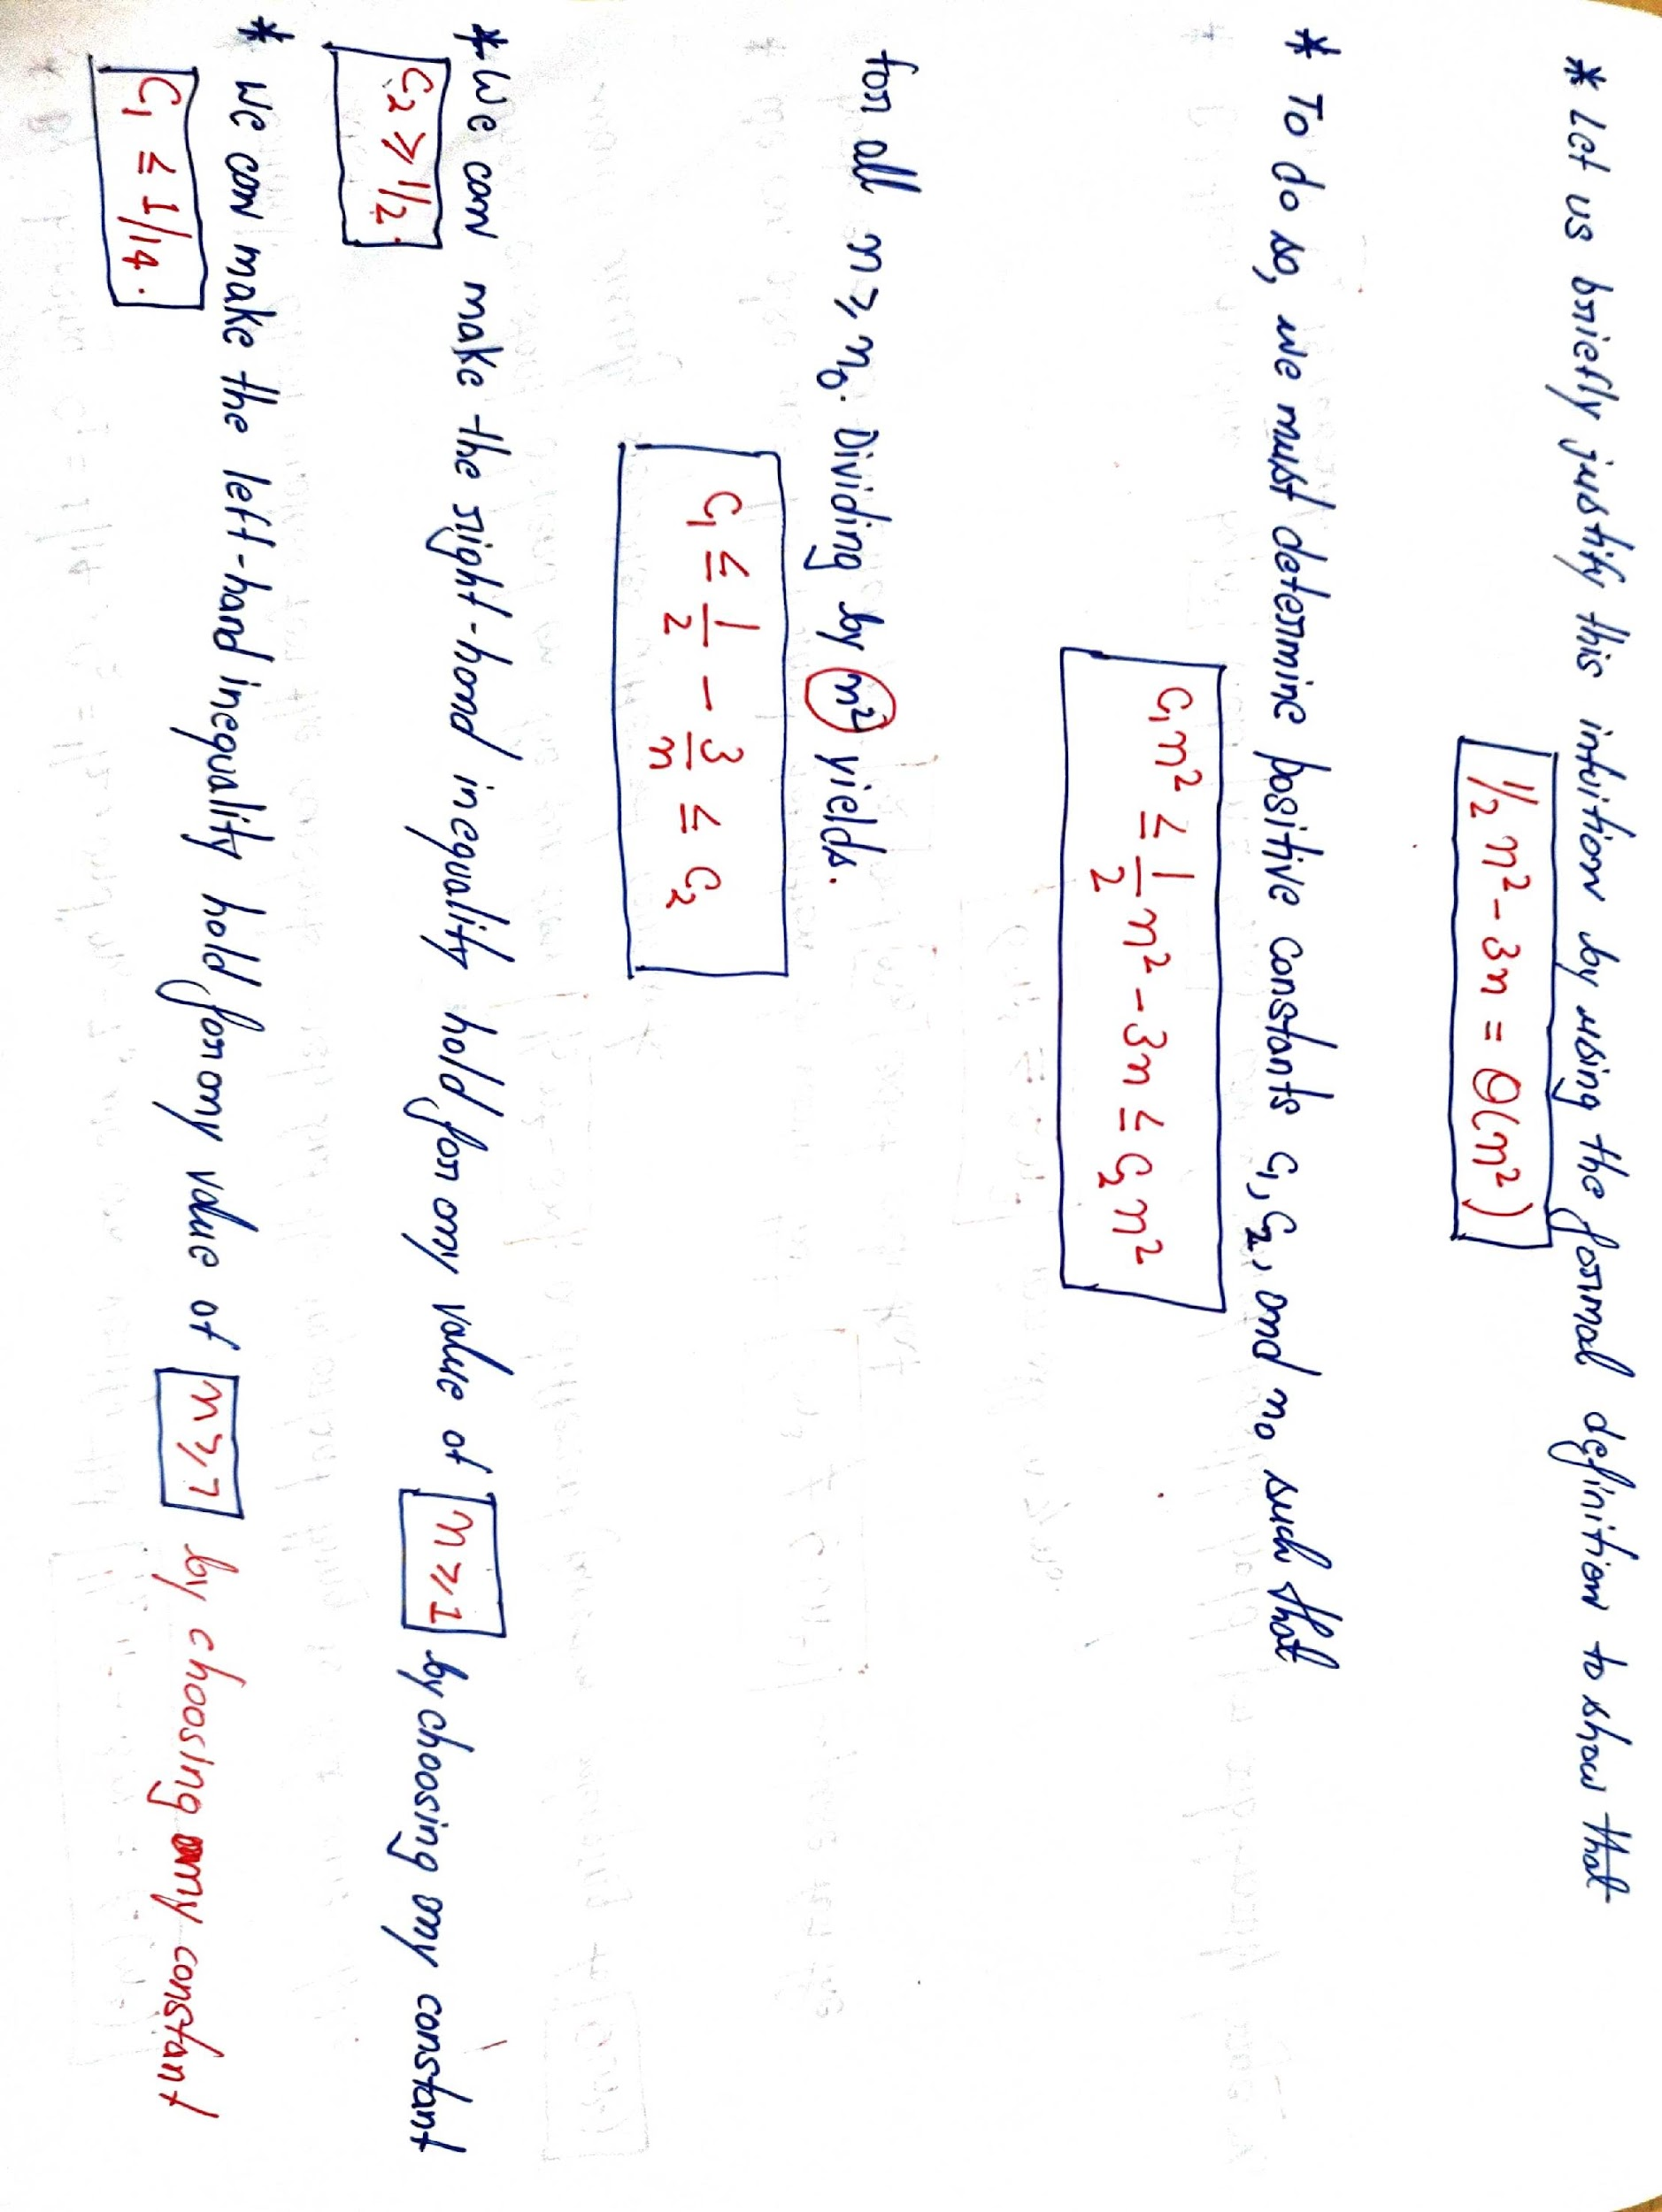 * Let us briefly justify this intuition by using the formal definition to show that
1/2 n² - 3n = Θ(n²)
* To do so, we must determine positive constants c₁, c₂, and n₀ such that
c₁n² ≤ 1/2 n² - 3n ≤ c₂n²
for all n ≥ n₀. Dividing by n² yields.
c₁ ≤ 1/2 - 3/n ≤ c₂
* We can make the right-hand inequality hold for any value of n ≥ 1 by choosing any constant
c₂ ≥ 1/2.
* We can make the left-hand inequality hold for any value of n ≥ 7 by choosing any constant
c₁ ≤ 1/14.